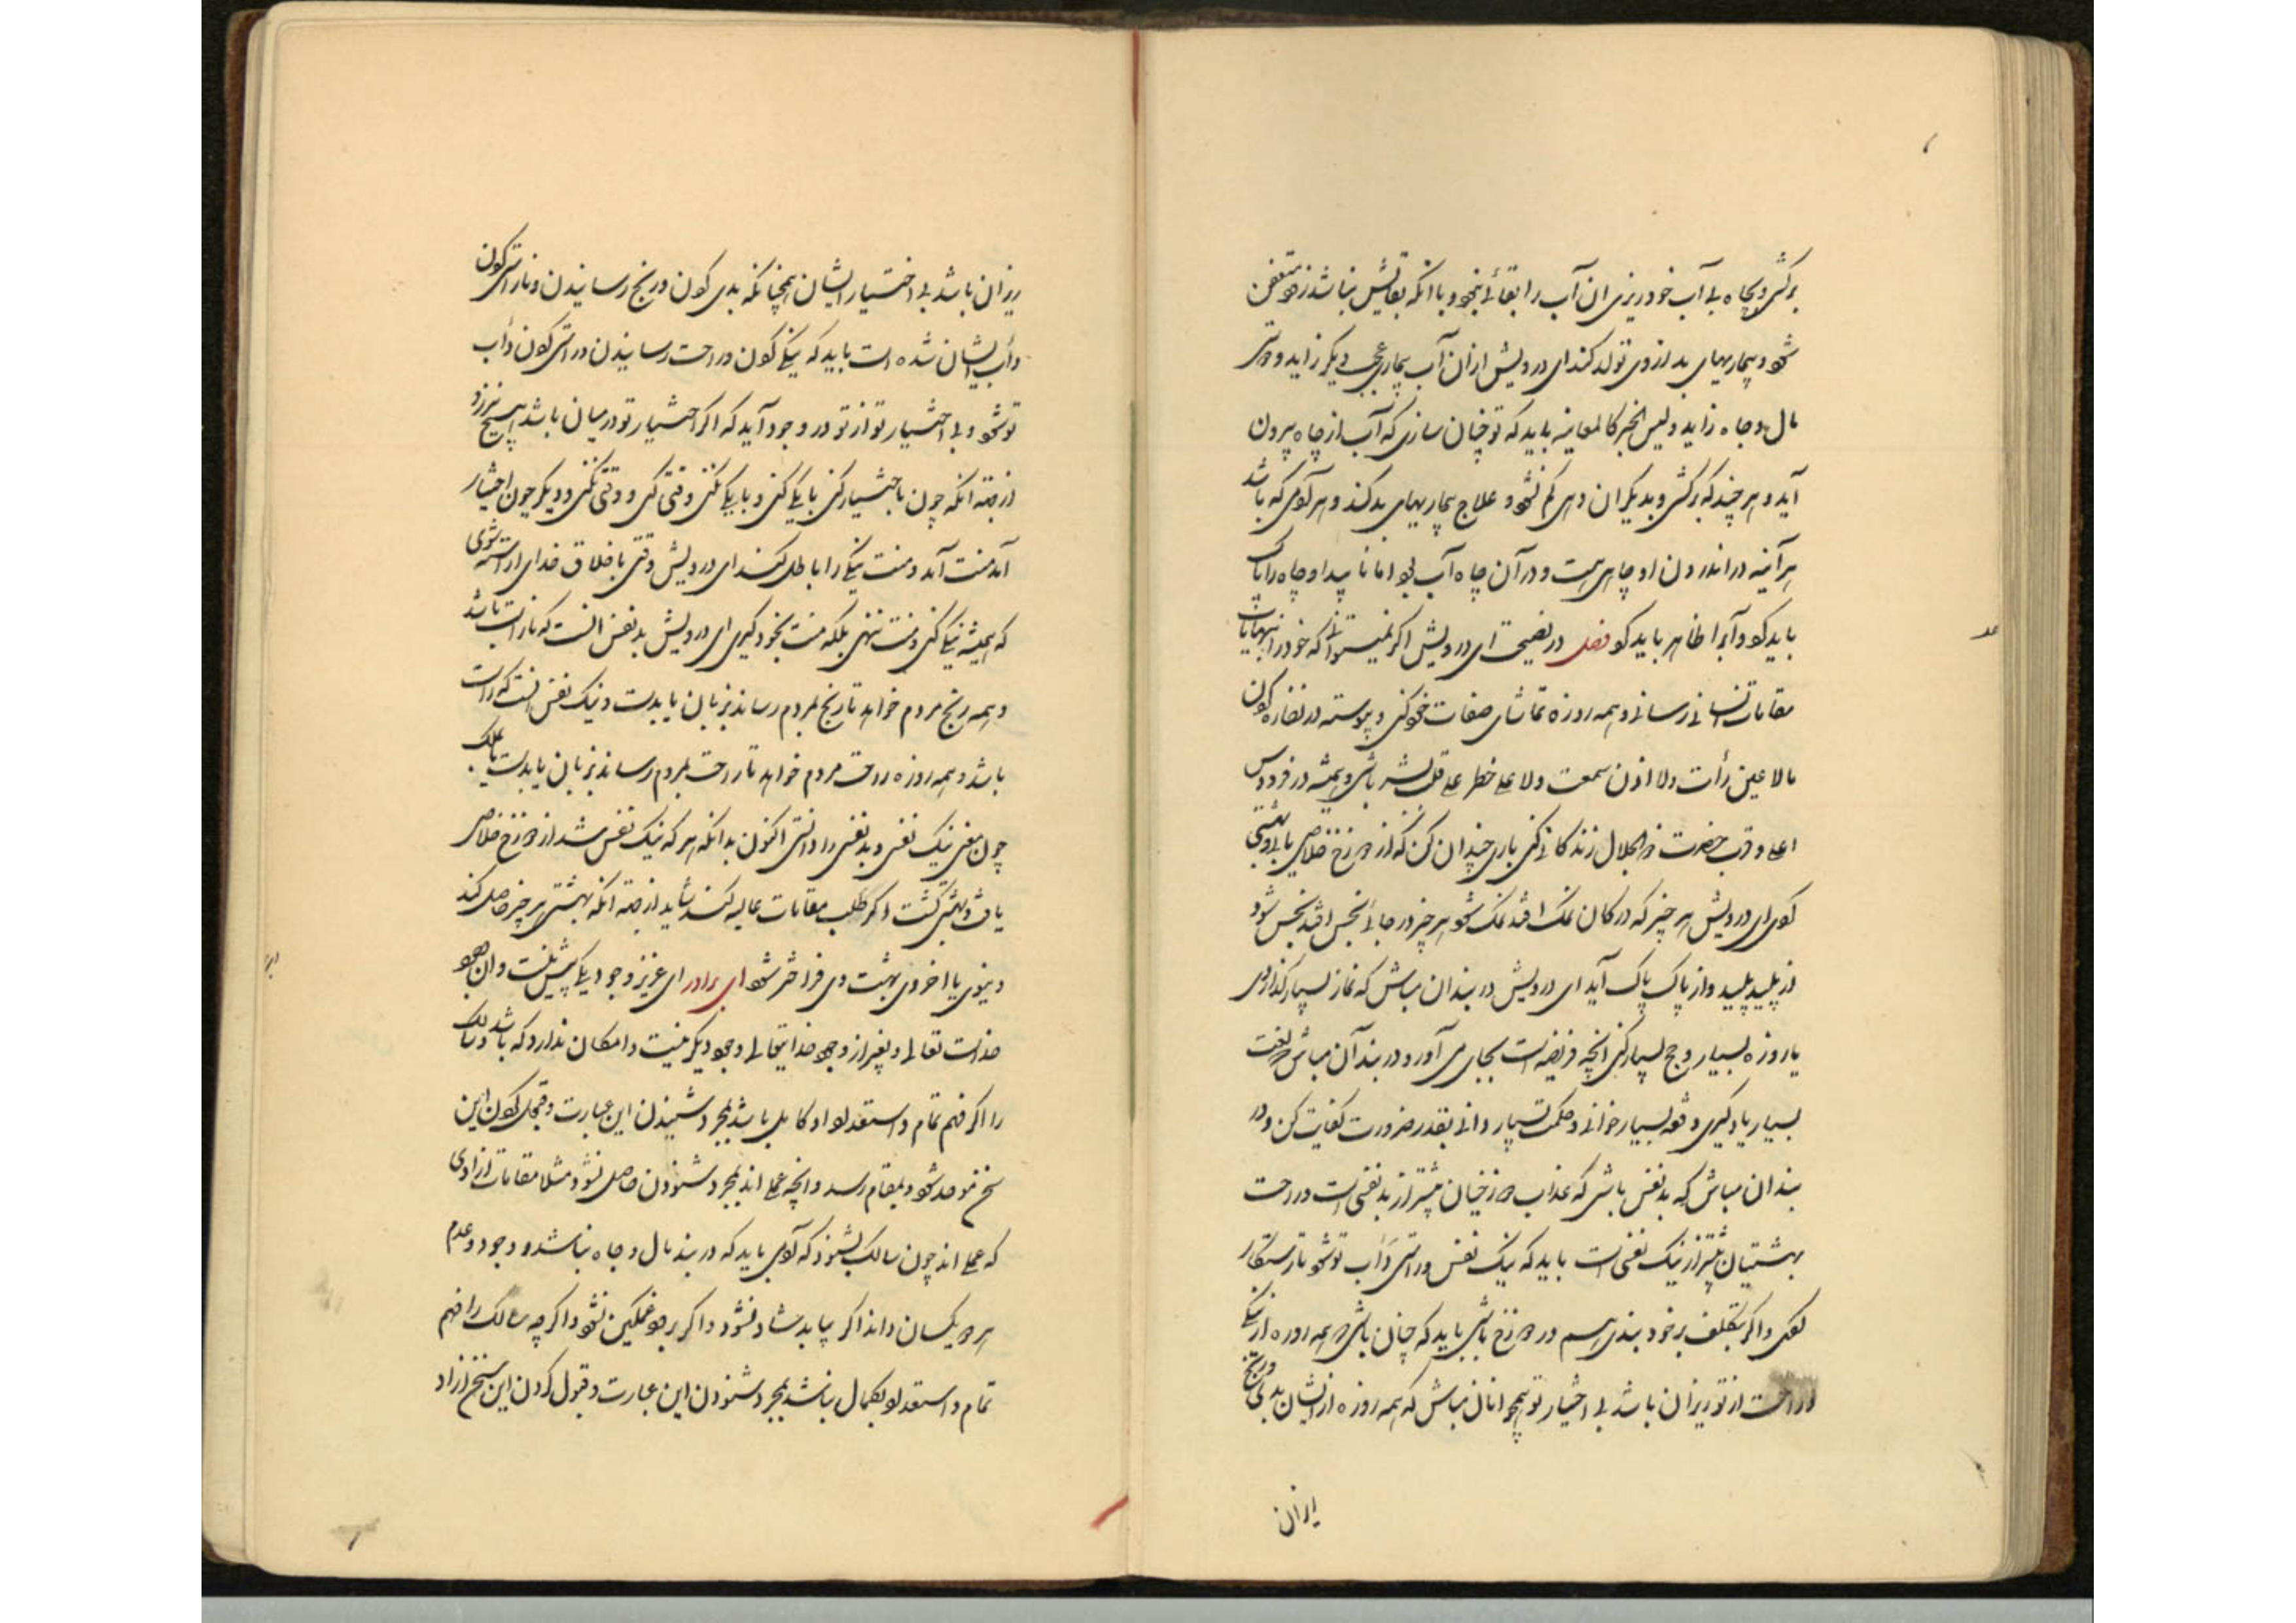 برکشی و بچاه بی آب خود ریزی ان آب را بقائی نبود و با انکه بقایش نباشد زود متعفن
شود و بیماریهای بد ازوی تولد کند ای درویش ازان آب بیماری عجب دیگر زاید و دوستی
مال و جاه زاید و لیس الخبر کالمعاینه باید که تو چنان سازی که آب از چاه بیرون
آید و هر چند که برکشی و بدیکران دهی کم نشود و علاج بیماریهای بد کند و هر آدمی که باشد
هر آینه در اندرون او چاهی هست و در آن چاه آب بود اما ناپیدا و چاه را پاک
باید کرد و آبرا ظاهر باید کرد فصل در نصیحت ای درویش اکر نمیتوانی که خود را بنهایات
مقامات انسانی رسانی و همه روزه تماشای صفات خود کنی و پیوسته در نظاره کردن
مالا عین رأت ولا اذن سمعت ولا علی خطر علی قلب بشر باشی و همیشه در فردوس
اعلی و قرب حضرت ذو الجلال زندکانی کنی باری چندان کن که از دوزخ خلاصی یابی و بهشتی
کردی ای درویش هر چیز که در کان نمک افتد نمک شود هر چیز در جائی نجس افتد نجس شود
از پلید پلید و از پاک پاک آید ای درویش در بند ان مباش که نماز بسیار گذاری
یا روزه بسیار و حج بسیار کنی انچه فریضه است بجای می آور و در بند آن مباش که لغت
بسیار یاد کیری و قصه بسیار خوانی و حکمت بسیار دانی بقدر ضرورت کفایت کن و در
بند ان مباش که بد نفس باشی که عذاب دوزخیان بیشتر از بد نفسی است و راحت
بهشتیان بیشتر از نیک نفسی است باید که نیک نفس و راستی دأب تو شود تا رستکار
کردی و اکر بتکلف بر خود بندی هم در دوزخ باشی باید که چنان باشی که همه روزه از تو نیکی
و راحت از تو ریزان باشد بی اختیار تو همچو انان مباش که همه روزه از ایشان بدی و رنج
ریزان
ریزان باشد بی اختیار ایشان همچنانکه بدی کردن و رنج رسانیدن و ناراستی کردن
دأب ایشان شده است باید که نیکی کردن و راحت رسانیدن و راستی کردن دأب
تو شود و بی اختیار تو از تو در وجود آید که اکر اختیار تو در میان باشد هیچ نیرزد
از جهة انکه چون باختیار کنی با یکی کنی و با یکی نکنی وقتی کنی و وقتی نکنی و دیکر چون اختیار
آمد منت آمد و منت نیکی را باطل کند ای درویش وقتی باخلاق خدای اراسته شوی
که همیشه نیکی کنی و منت ننهی بلکه منت بخود گیری ای درویش بد نفس انست که ناراست باشد
و همه رنج مردم خواهد تا رنج بمردم رساند بزبان یا بدست و نیک نفس انست که راست
باشد و همه روزه راحت مردم خواهد تا راحت بمردم رساند بزبان یا بدست یا بمال
چون معنی نیک نفسی و بد نفسی را دانستی اکنون بدانکه هر که نیک نفس شد از دوزخ خلاص
یافت و بهشتی کشت و اکر طلب مقامات عالیه کند شاید از جهة انکه بهشتی هر چیز حاصل کند
دنیوی یا اخروی بهشت وی فراختر شود ای برادر ای عزیز وجود یکی بیش نیست و ان وجود
خداست تعالی و بغیر از وجود خدایتعالی وجود دیکر نیست و امکان ندارد که باشد و سالک
را اکر فهم تمام و استعداد او کامل باشد بمجرد شنیدن این عبارت و قبول کردن این
سخن موحد شود و بمقام رسد و انچه عملی اند بمجرد شنودن حاصل نشود مثلا مقامات ازادی
که عملی اند چون سالک بشنود که آدمی باید که در بند مال و جاه نباشد و وجود و عدم
هر دو یکسان داند اکر بیاید شاد نشود و اکر برود غمکین نشود و اکر چه سالک را فهم
تمام و استعداد بکمال باشد بمجرد شنودن این عبارت و قبول کردن این سخن ازاد